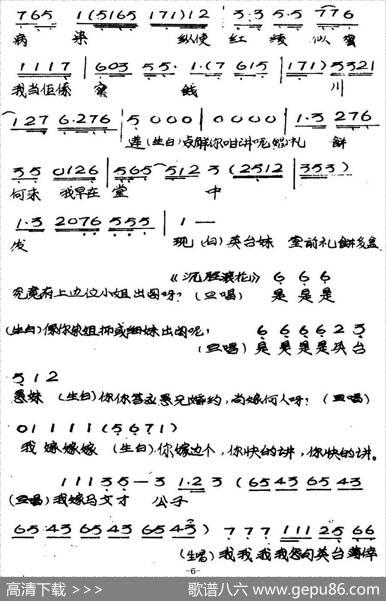 7 6 5 1 (5 1 6 5 1 7 1) 1 2 3· 3 5· 5 7 7 6
病 染 纵使 红 绫 似 蛮
1 1 1 7 6 0 3 5 5· 1· (7 6 1 5 1 7 1) 5 5 2 1
我当佢係 窝 钱 川
1 2 7 6· 2 7 6 5 0 0 0 0 0 0 0 1· 3 2 7 6
莲 (生白) 点解你咁讲呢 婚 礼 餅
3 5 0 1 2 6 5 6 5 5 1 2 3 (2 5 1 2 3 5 3)
何来 我早在 堂 中
1· 3 2 0 7 6 5 5 5 1 —
发 现 (白) 英台妹 堂前礼餅多盒
《沉腔滚花》 6 6 6
究竟有上边位小姐出阁呀? (旦唱) 是 是 是
(生白) 係你嘅姐抑或细妹出阁呢! 6 6 6 6 2 3
(旦唱) 是 是 是 是 英台
5 1 2
愚妹 (生白) 你你答应愚兄婚约,尚嫁何人呀? (旦唱)
0 1 1 1 1 (5 6 7 1)
我 嫁嫁嫁 (生白) 你嫁边个,你快的讲,你快的讲。
1 1 1 3 5 — 3 1· 2 3 (6 5 4 3 6 5 4 3
(旦唱) 我嫁马文才 公子
6 5 4 3 6 5 4 3 6 5 4 3) 7 7 7 1 1 1 2 5 6 6
(生唱) 我 我 我 我怨句英台薄倖
-6-
高清下载 >>> 歌谱八六 www.gepu86.com